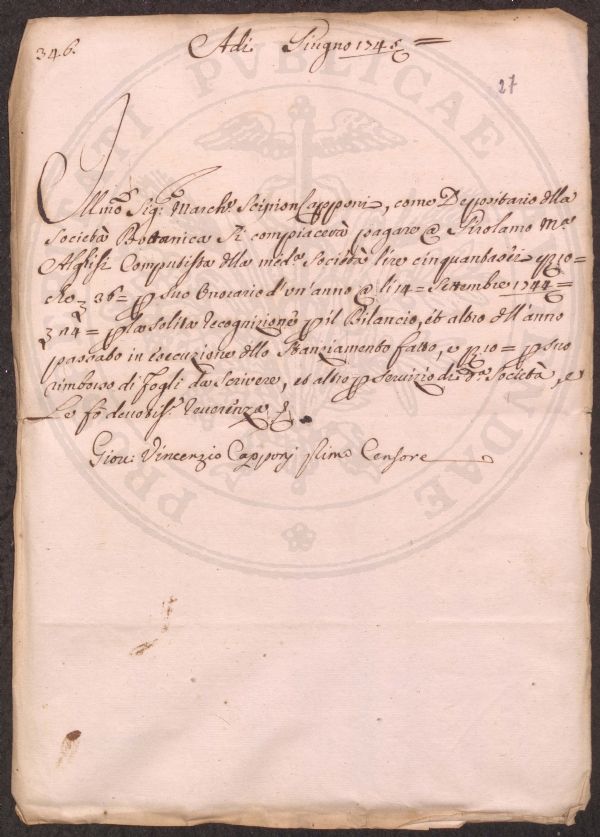 346.
Adi Giugno 1745 =
27
Illmo Sig: March: Scipion Capponi, come Depositario dlla
Società Bottanica Si compiacerà pagare @ Girolamo Ma
Alghisi Computista dlla meda Società lire cinquantasei 10 =
che 36 = p suo Onorario d'un'anno @ li 14 = Settembre 1744 =
14 = p la solita recognizione p il Bilancio, et altro dll'anno
passato in esecuzione dllo Stanziamento fatto, e 10 = p suo
rimborso di fogli da scrivere, et altro p servizio di da Società, e
Le fo devotis: reverenza
Giou: Vincenzio Capponj Censore
PUBLICAE